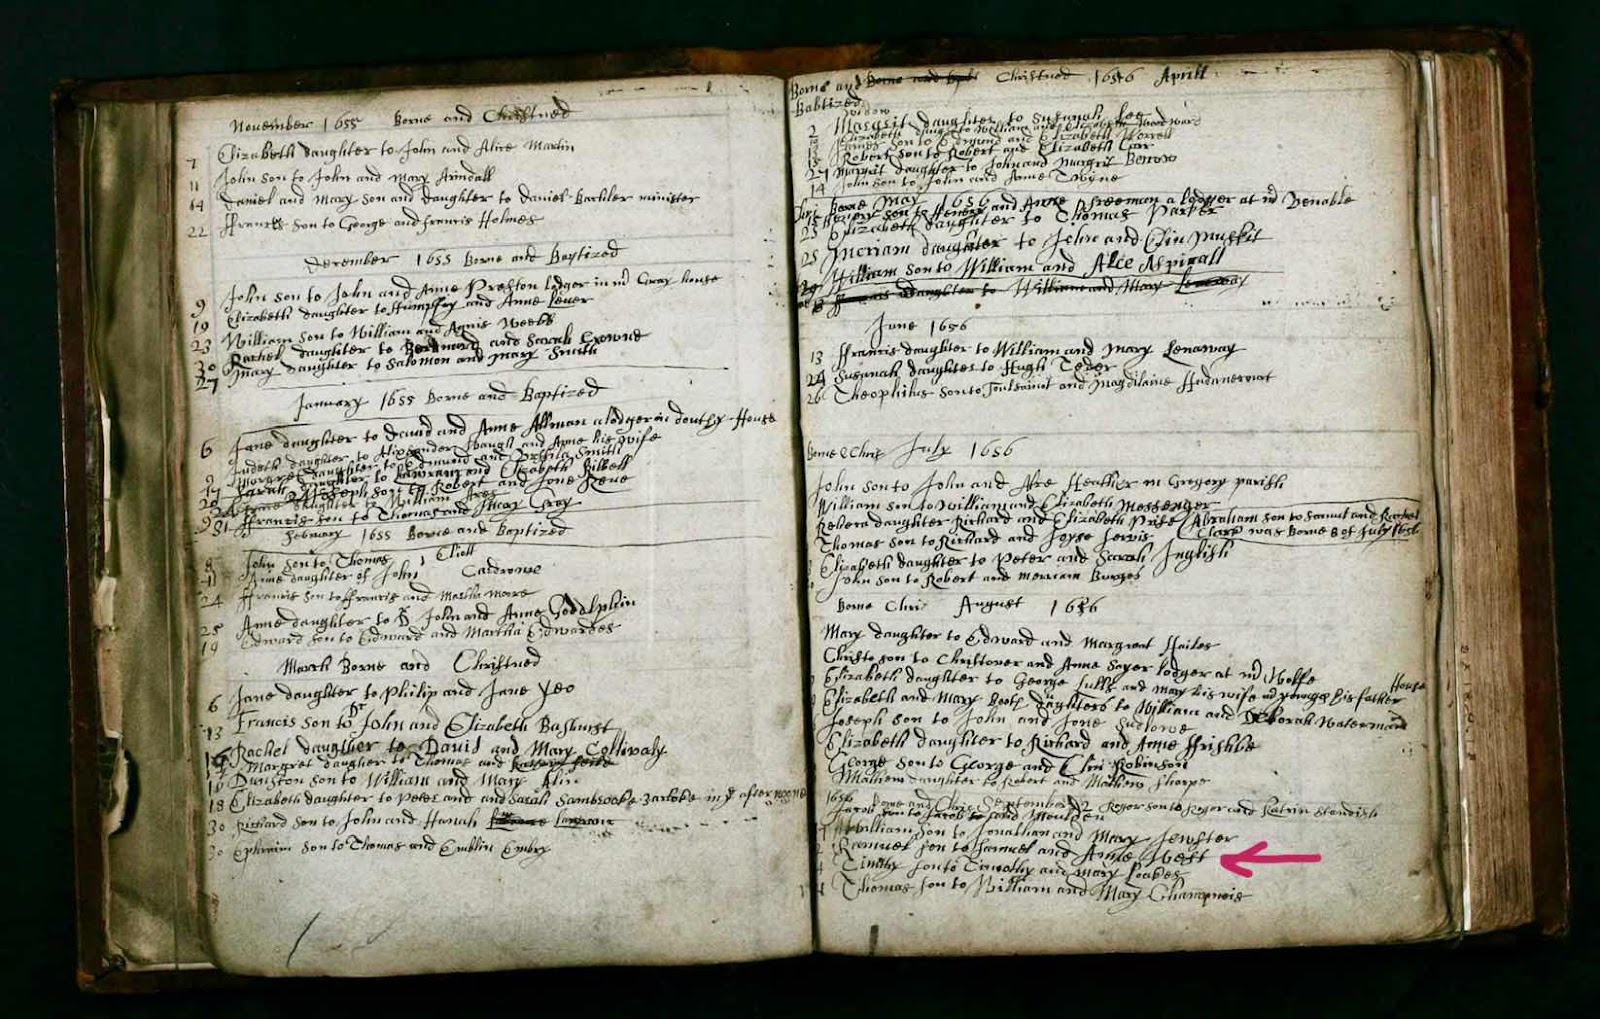 November 1655 Borne and Christned
7 Elizabeth daughter to John and Alice Martin
11 John son to John and Mary Arundall
14 Daniel and Mary son and daughter to Daniel minister
22 ffrancis son to George and francis Holmes
December 1655 Borne and Baptized
9 John son to John and Anne Preston lodger in mr Gray house
Elizabeth daughter to Humphry and Anne Leuer
19 William son to William and Agnis Weebb
23 Rachel daughter to and Sarah Crowne
30 Mary daughter to Salomon and Mary Smith
27
January 1655 Borne and Baptized
6 Jane daughter to David and Anne Allman a lodger in House
Judeth daughter to Alixsander and Anne his wife
9 Margret daughter to Edmund and Smith
17 Sarah daughter to and Elizabeth Billett
Joseph son to Robert and Jone
daughter to William
31 ffrancis son to Thomas and Mary Gray
February 1655 Borne and Baptized
8 John son to Thomas Eliott
11 Anne daughter of John
24 ffrancis son to ffrancis and Martha Moore
25 Anne daughter to Sr John and Anne Goddlphin
19 Edward son to Edward and Martha Edwardes
March Borne and Christned
6 Jane daughter to Philip and Jane Yeo
13 Francis son to Dr John and Elizabeth Bathurst
16 Rachel daugther to David and Mary
Margret daugher to Thomas and
16 Dunston son to William and Mary
18 Elizabeth daughter to Peter and and Sarah Sambrooke in ye after noone
30 Richard son to John and Hanah
30 Ephraim son to Thomas and Emblin Embry
Borne and Christned 1656 Aprill
Babtized
2 Margrit daughter to Susanah Lee
Elizabeth daughter to William and Elizabeth Woodward
James son to Edmund and Elizabeth
Robert son to Robert and Elizabeth Carr
27 Margrit daughter to John and Margrit
14 John son to John and Anne Twyne
Borne May 1656
son to Henery and Anne ffreeman a lodger at mr Venable
23 Elizabeth daughter to Thomas Parker
25 Merriam daughter to John and Elin
29 William son to William and Alce Aspinall
daughter to William and Mary
June 1656
13 ffrancis daughter to William and Mary Lenaway
24 Susanah daughter to Hugh
26 Theophilus son to and Magdilaine
Borne & Chris July 1656
John son to John and Heather in Gregory parish
William son to William and Elizabeth Messenger
Rebeca daughter Richard and Elizabeth Abraham son to Samuel and Rachel
Thomas son to Richard and Joyse Clark was Borne 8 of July 1656
Elizabeth daughter to Peter and Sarah Inglish
John son to Robert and Merriam Burges
Borne Chris August 1656
Mary daughter to Edward and Margreat Hailes
son to Christover and Anne Sayer lodger at mr Wolfe
Elizabeth daughter to George and Mary his wife his father House
Elizabeth and Mary Both daughters to William and Deborah Waterman
Joseph son to John and Jone Sudlowe
Elizabeth daughter to Richard and Anne
George son to George and Elin Robinson
daughter to Robert and Sharpe
1656 Borne and Chris September 2 Roger son to Roger and Katrin Standish
Jacob son to Jacob and
William son to Jonathan and Mary Jewster
Samuel son to Samuel and Anne West
Timothy son to Timothy and Mary
Thomas son to William and Mary Champneis